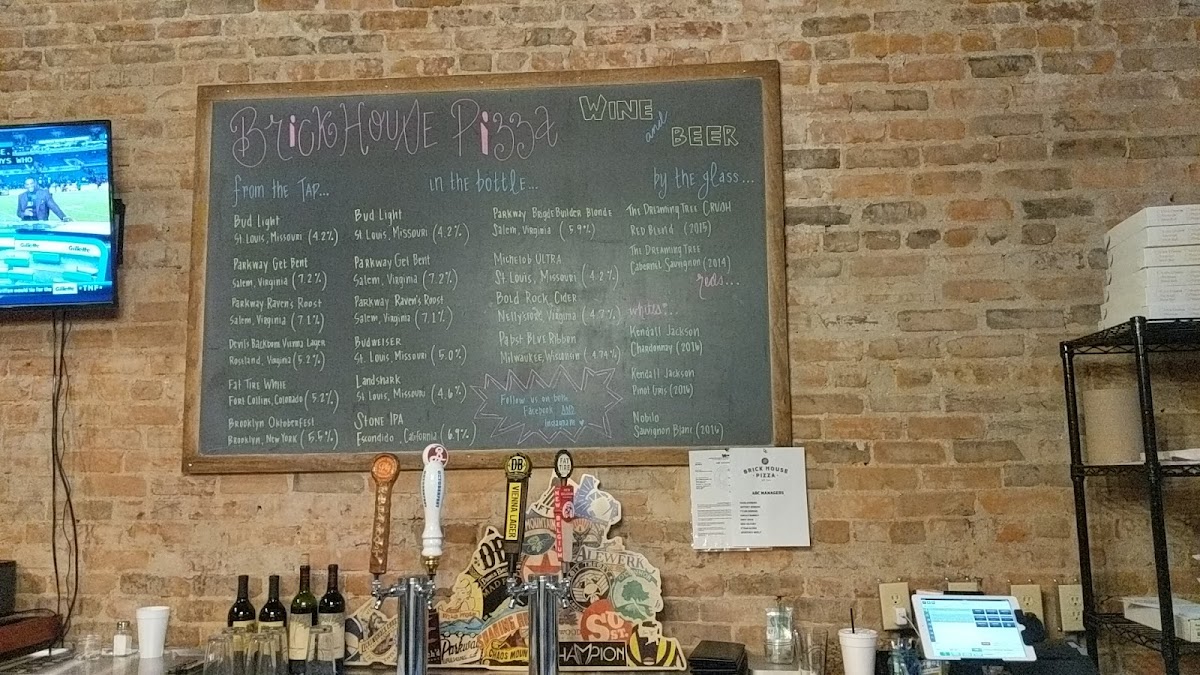 BrickHouse Pizza
WINE
and
BEER
from the TAP...
Bud Light
St. Louis, Missouri (4.2%)
Parkway Get Bent
Salem, Virginia (7.2%)
Parkway Raven's Roost
Salem, Virginia (7.1%)
Devils Backbone Vienna Lager
Roseland, Virginia (5.2%)
Fat Tire White
Fort Collins, Colorado (5.2%)
Brooklyn Oktoberfest
Brooklyn, New York (5.5%)
in the bottle...
Bud Light
St. Louis, Missouri (4.2%)
Parkway Get Bent
Salem, Virginia (7.2%)
Parkway Raven's Roost
Salem, Virginia (7.1%)
Budweiser
St. Louis, Missouri (5.0%)
Landshark
St. Louis, Missouri (4.6%)
Stone IPA
Escondido, California (6.9%)
Parkway Bridge Builder Blonde
Salem, Virginia (5.9%)
Michelob ULTRA
St. Louis, Missouri (4.2%)
Bold Rock Cider
Nellysford, Virginia (4.7%)
Pabst Blue Ribbon
Milwaukee, Wisconsin (4.74%)
Follow us on both
Facebook AND
Instagram
by the glass...
The Dreaming Tree CRUSH
Red Blend (2015)
The Dreaming Tree
Cabernet Sauvignon (2014)
reds...
whites...
Kendall Jackson
Chardonnay (2016)
Kendall Jackson
Pinot Gris (2016)
Nobilo
Sauvignon Blanc (2016)
BRICK HOUSE
PIZZA
ABC MANAGERS
YS WHO
Gillette
Gillette
TNF
DB
VIENNA LAGER
FAT TIRE
DB
MOUNTAIN
ALEWERK
Parkway
CHAOS MOUN
HAMPION